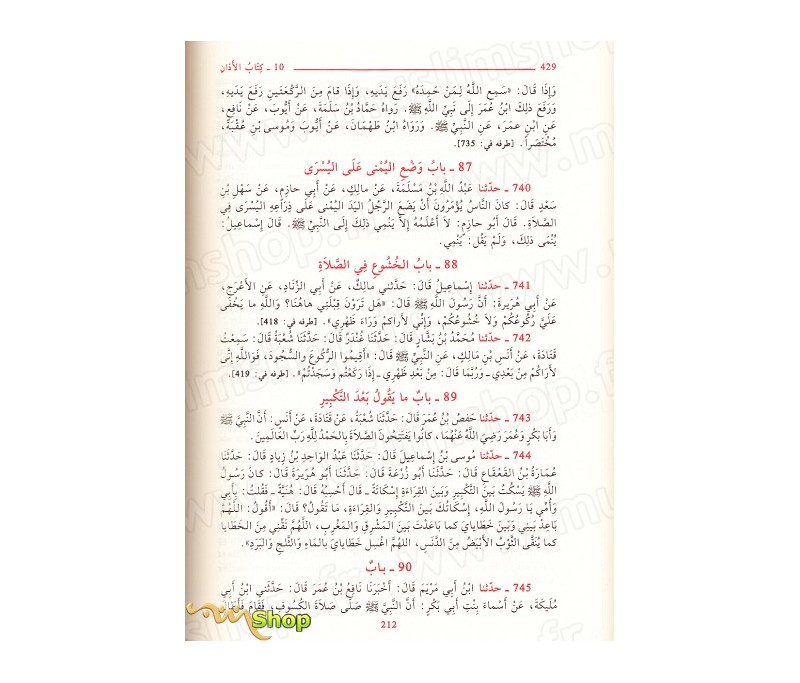 10 ـ كِتَابُ الأَذَانِ 429
وَإِذَا قَالَ: «سَمِعَ اللَّهُ لِمَنْ حَمِدَهُ» رَفَعَ يَدَيهِ، وَإِذَا قامَ مِنَ الرَّكْعَتَينِ رَفَعَ يَدَيهِ،
وَرَفَعَ ذلِكَ ابْنُ عُمَرَ إِلَى نَبِيِّ اللَّهِ ﷺ. رَوَاهُ حَمَّادُ بْنُ سَلَمَةَ، عَنْ أَيُّوبَ، عَنْ نَافِعٍ،
عَنِ ابْنِ عمَرَ، عَنِ النَّبِيِّ ﷺ. وَرَوَاهُ ابْنُ طَهْمَانَ، عَنْ أَيُّوبَ وَمُوسى بْنِ عُقْبَةَ،
مُخْتَصَراً. [طرفه في: 735].
87 ـ بابُ وَضْعِ اليُمْنى عَلَى اليُسْرَى
740 ـ حدّثنا عَبْدُ اللَّهِ بْنُ مَسْلَمَةَ، عَنْ مالِكٍ، عَنْ أَبِي حازِمٍ، عَنْ سَهْلِ بْنِ
سَعْدٍ قَالَ: كانَ النَّاسُ يُؤْمَرُونَ أَنْ يَضَعَ الرَّجُلُ اليَدَ اليُمْنى عَلَى ذِرَاعِهِ اليُسْرَى فِي
الصَّلاَةِ. قَالَ أَبُو حازِمٍ: لاَ أَعْلَمُهُ إِلاَّ يَنْمِي ذلِكَ إِلَى النَّبِيِّ ﷺ. قَالَ إِسْماعِيلُ:
يُنْمَى ذلِكَ، وَلَمْ يَقُل: يَنْمِي.
88 ـ بابُ الخُشُوعِ فِي الصَّلاَةِ
741 ـ حدّثنا إِسْماعِيلُ قَالَ: حَدَّثَنِي مالِكٌ، عَنْ أَبِي الزِّنَادِ، عَنِ الأَعْرَجِ،
عَنْ أَبِي هُرَيرَةَ: أَنَّ رَسُولَ اللَّهِ ﷺ قَالَ: «هَل تَرَوْنَ قِبْلَتِي هاهُنَا؟ وَاللَّهِ ما يَخْفَى
عَلَيَّ رُكُوعُكُمْ وَلاَ خُشُوعُكُمْ، وَإِنِّي لأَرَاكمْ وَرَاءَ ظَهْرِي». [طرفه في: 418].
742 ـ حدّثنا مُحَمَّدُ بْنُ بَشَّارٍ قَالَ: حَدَّثَنَا غُنْدَرٌ قَالَ: حَدَّثَنَا شُعْبَةُ قَالَ: سَمِعْتُ
قَتَادَةَ، عَنْ أَنَسِ بْنِ مَالِكٍ، عَنِ النَّبِيِّ ﷺ قَالَ: «أَقِيمُوا الرُّكُوعَ وَالسُّجُودَ، فَوَاللَّهِ إِنِّي
لأَرَاكُمْ مِنْ بَعْدِي ـ وَرُبَّمَا قَالَ: مِنْ بَعْدِ ظَهْرِي ـ إِذَا رَكَعْتُمْ وَسَجَدْتُمْ». [طرفه في: 419].
89 ـ بابُ ما يَقُولُ بَعْدَ التَّكْبِيرِ
743 ـ حدّثنا حَفصُ بْنُ عُمَرَ قَالَ: حَدَّثَنَا شُعْبَةُ، عَنْ قَتَادَةَ، عَنْ أَنَسٍ: أَنَّ النَّبِيَّ ﷺ
وَأَبَا بَكْرٍ وَعُمَرَ رَضِيَ اللَّهُ عَنْهُمَا، كانُوا يَفتَتِحُونَ الصَّلاَةَ بِالحَمْدُ لِلَّهِ رَبِّ العَالَمِينَ.
744 ـ حدّثنا مُوسى بْنُ إِسْماعِيلَ قَالَ: حَدَّثَنَا عَبْدُ الوَاحِدِ بْنُ زِيادٍ قَالَ: حَدَّثَنَا
عُمَارَةُ بْنُ القَعْقَاعِ قَالَ: حَدَّثَنَا أَبُو زُرْعَةَ قَالَ: حَدَّثَنَا أَبُو هُرَيرَةَ قَالَ: كانَ رَسُولُ
اللَّهِ ﷺ يَسْكُتُ بَيْنَ التَّكْبِيرِ وَبَينَ القِرَاءَةِ إِسْكاتَةً ـ قَالَ أَحْسِبُهُ قَالَ: هُنَيَّةً ـ فَقُلتُ: بِأَبِي
وَأُمِّي يَا رَسُولَ اللَّهِ، إِسْكَاتُكَ بَيْنَ التَّكْبِيرِ وَالقِرَاءَةِ، مَا تَقُولُ؟ قَالَ: «أَقُولُ: اللَّهُمَّ
بَاعِدْ بَينِي وَبَينَ خَطَايَايَ كما بَاعَدْتَ بَينَ المَشْرِقِ وَالمَغْرِبِ، اللَّهُمَّ نَقِّنِي مِنَ الخَطَايا
كما يُنَقَّى الثَّوْبُ الأَبْيَضُ مِنَ الدَّنَسِ، اللهُمَّ اغْسِل خَطَايَايَ بِالمَاءِ وَالثَّلجِ وَالبَرَدِ».
90 ـ بابٌ
745 ـ حدّثنا ابْنُ أَبِي مَرْيَمَ قَالَ: أَخْبَرَنَا نَافِعُ بْنُ عُمَرَ قَالَ: حَدَّثَنِي ابْنُ أَبِي
مُلَيكَةَ، عَنْ أَسْماءَ بِنْتِ أَبِي بَكْرٍ: أَنَّ النَّبِيَّ ﷺ صَلَّى صَلاَةَ الكُسُوفِ، فَقَامَ فَأَطَالَ
212
Shop